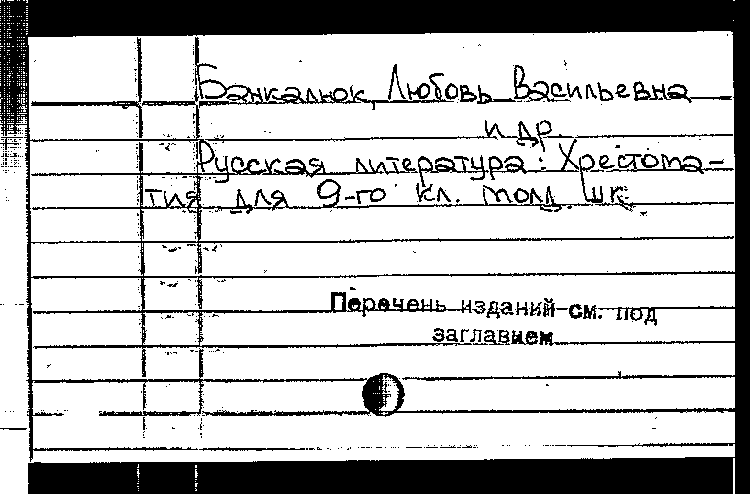 Банкалюк, Любовь Васильевна
и др.
Русская литература: Хрестома-
тия для 9-го кл. молд. шк.
Перечень изданий см. под
заглавием